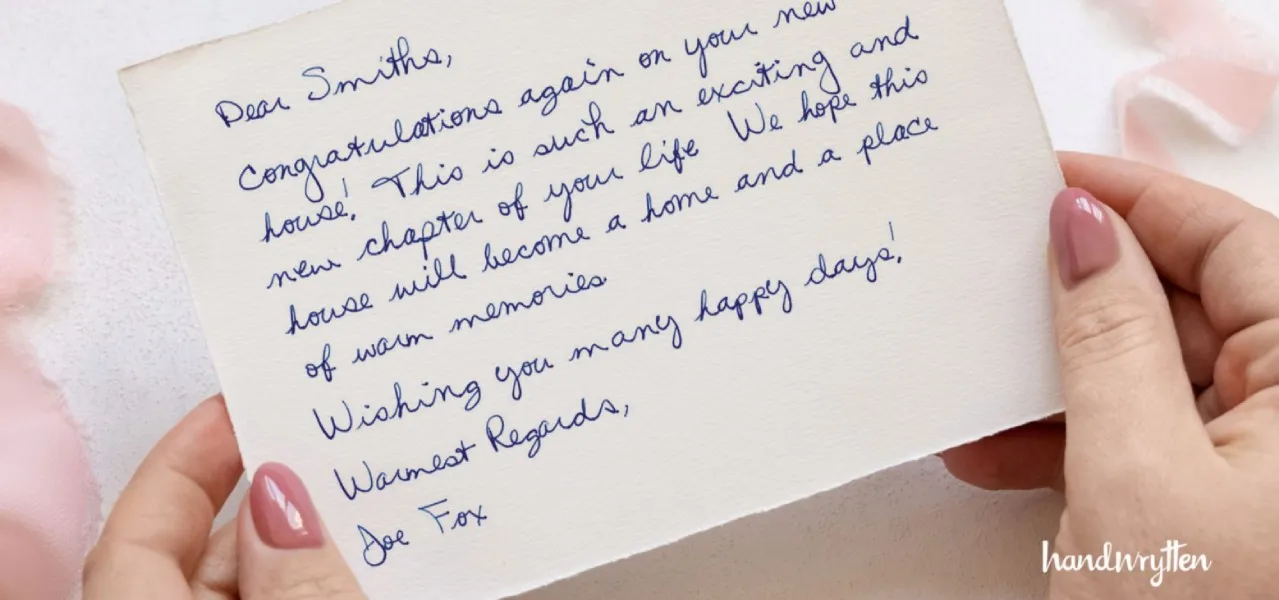 Dear Smiths,
Congratulations again on your new
house! This is such an exciting and
new chapter of your life We hope this
house will become a home and a place
of warm memories
Wishing you many happy days!
Warmest Regards,
Joe Fox
handwrytten